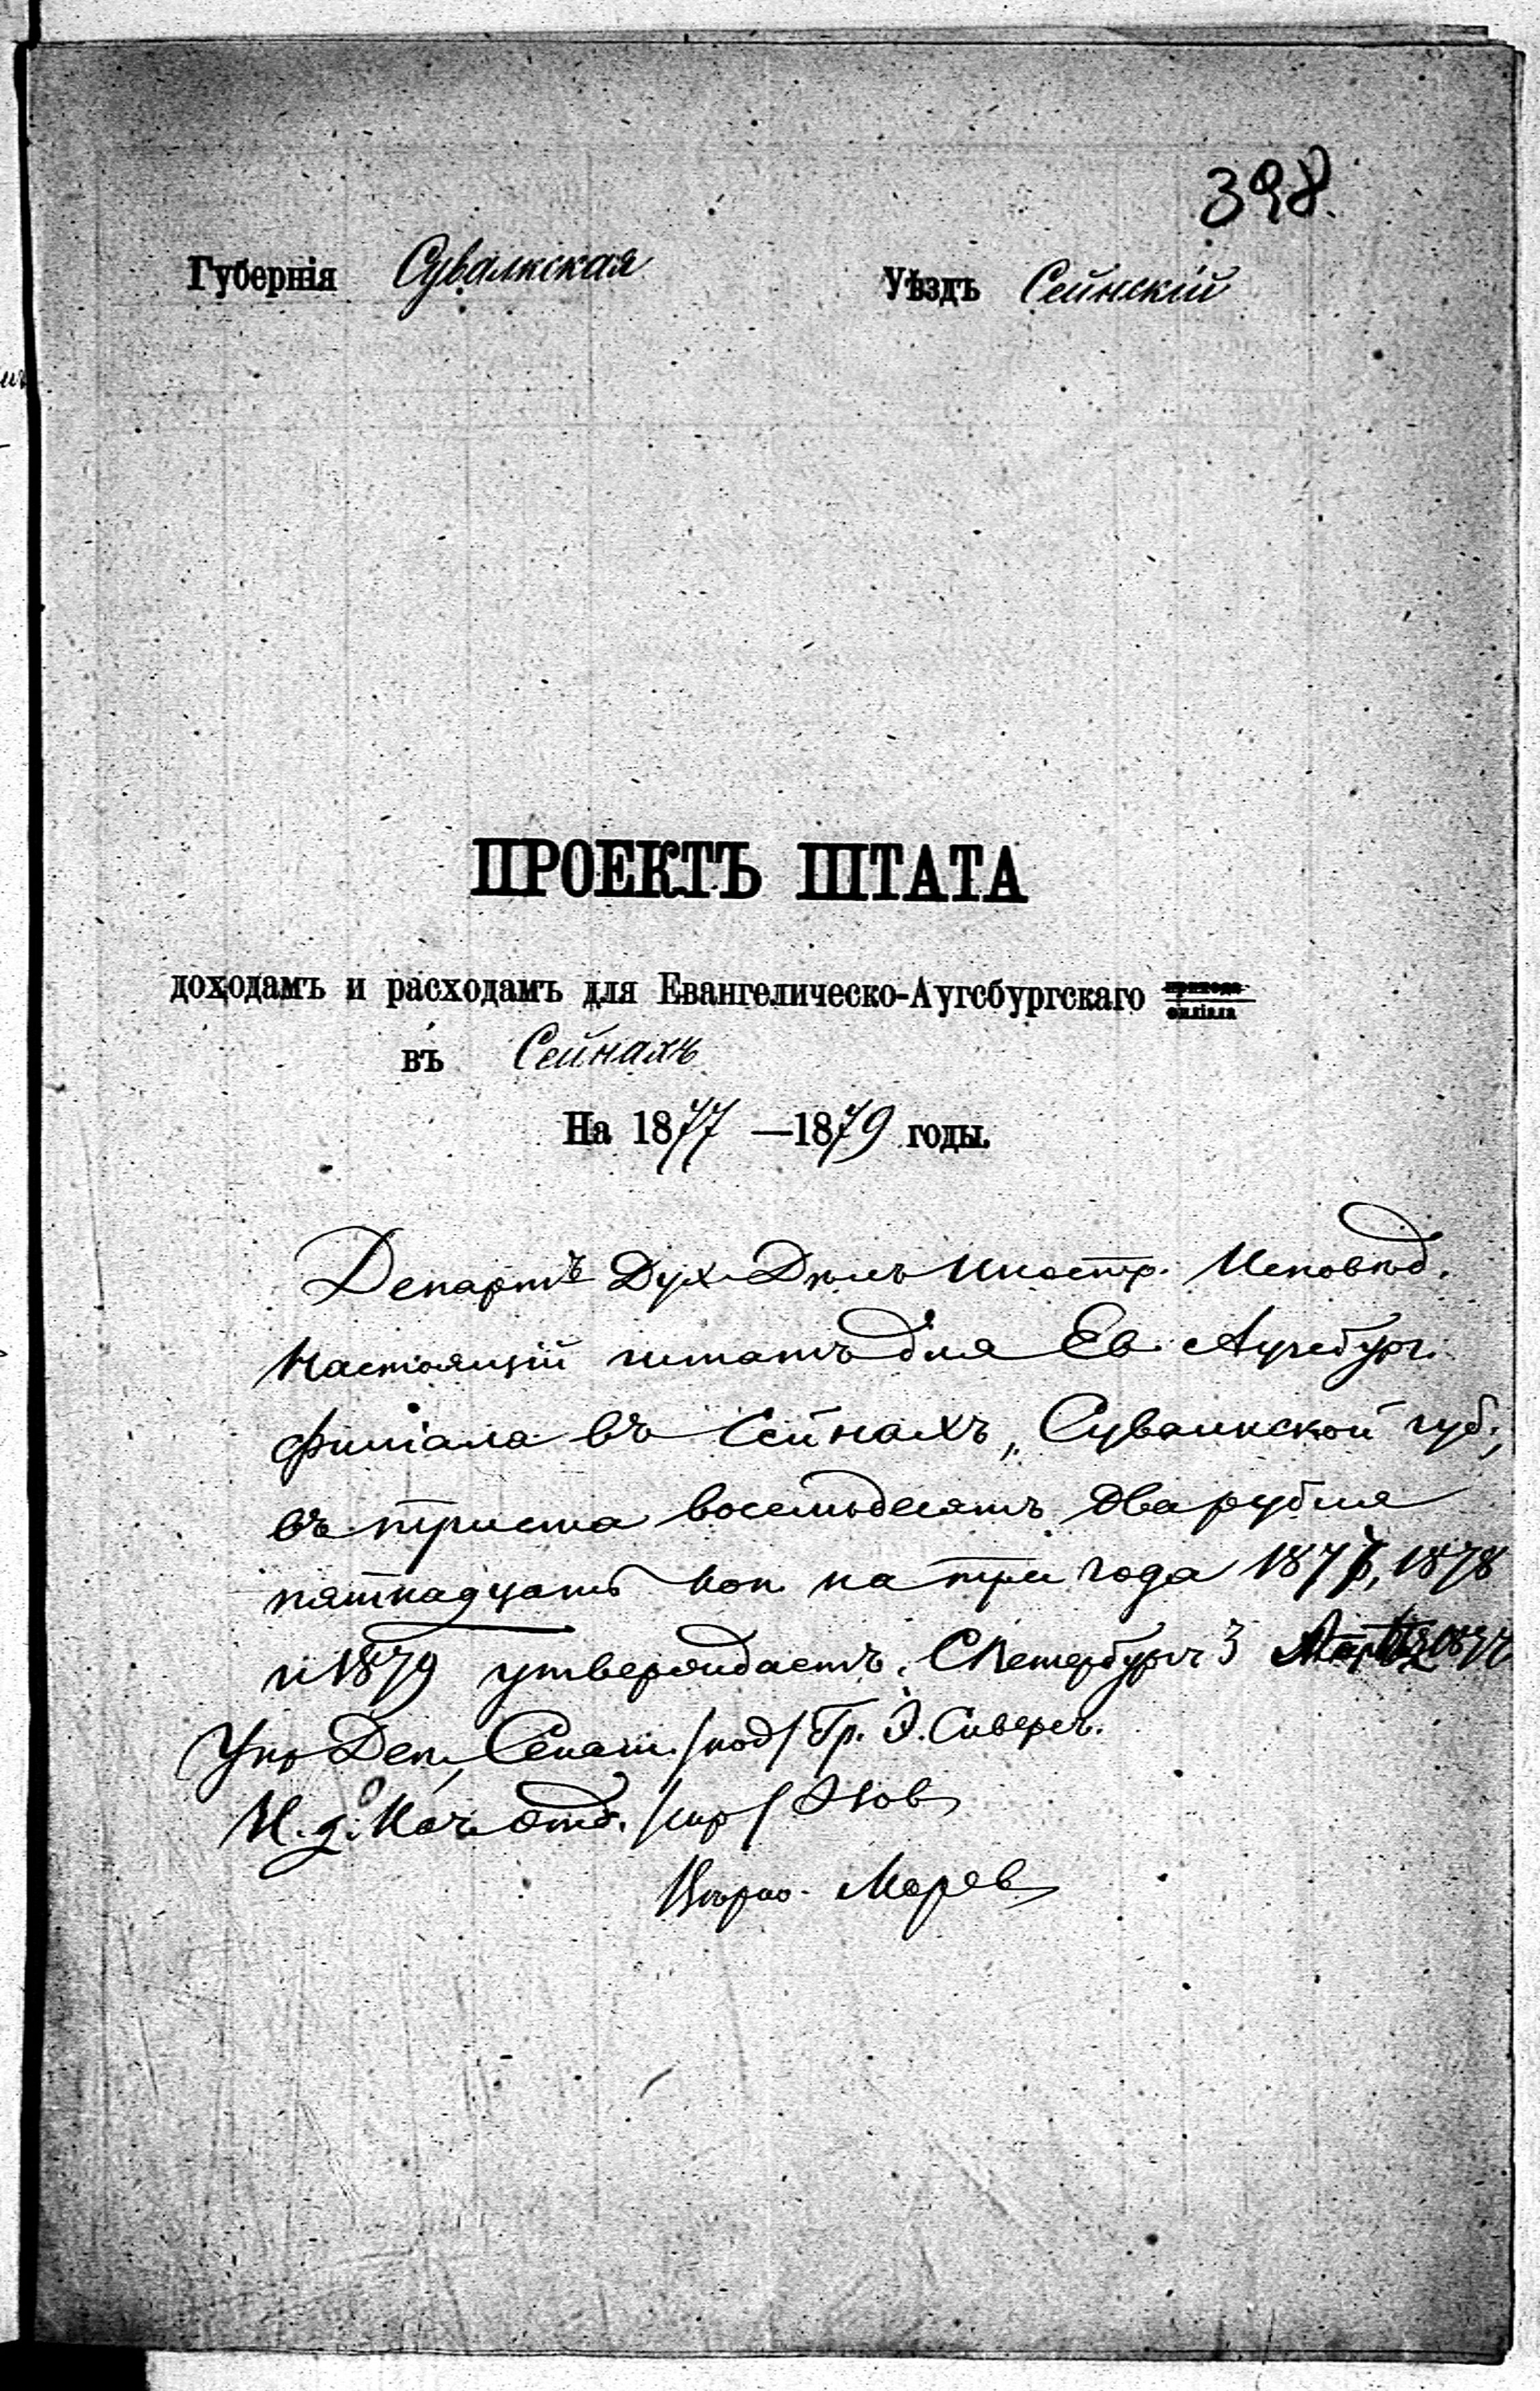 398.
Губернія Сувалкская Уѣздъ Сейнскій
ПРОЕКТЪ ШТАТА
доходамъ и расходамъ для Евангелическо-Аугсбургскаго прихода филіала
въ Сейнахъ
На 1877—1879 годы.
Департъ Дух. Дѣлъ Иностр. Исповѣд.
настоящій штатъ для Ев. Аугсбург.
филіала въ Сейнахъ, Сувалкской губ.,
въ триста восемьдесятъ два рубля
пятнадцать коп. на три года 1877, 1878
и 1879 утверждаетъ. СПетербургъ 3 Марта 1877
Упр. Деп. Сенат. /под/ Гр. Э. Сиверсъ.
И. д. Нач. Отд. /скр/
Вѣрно.